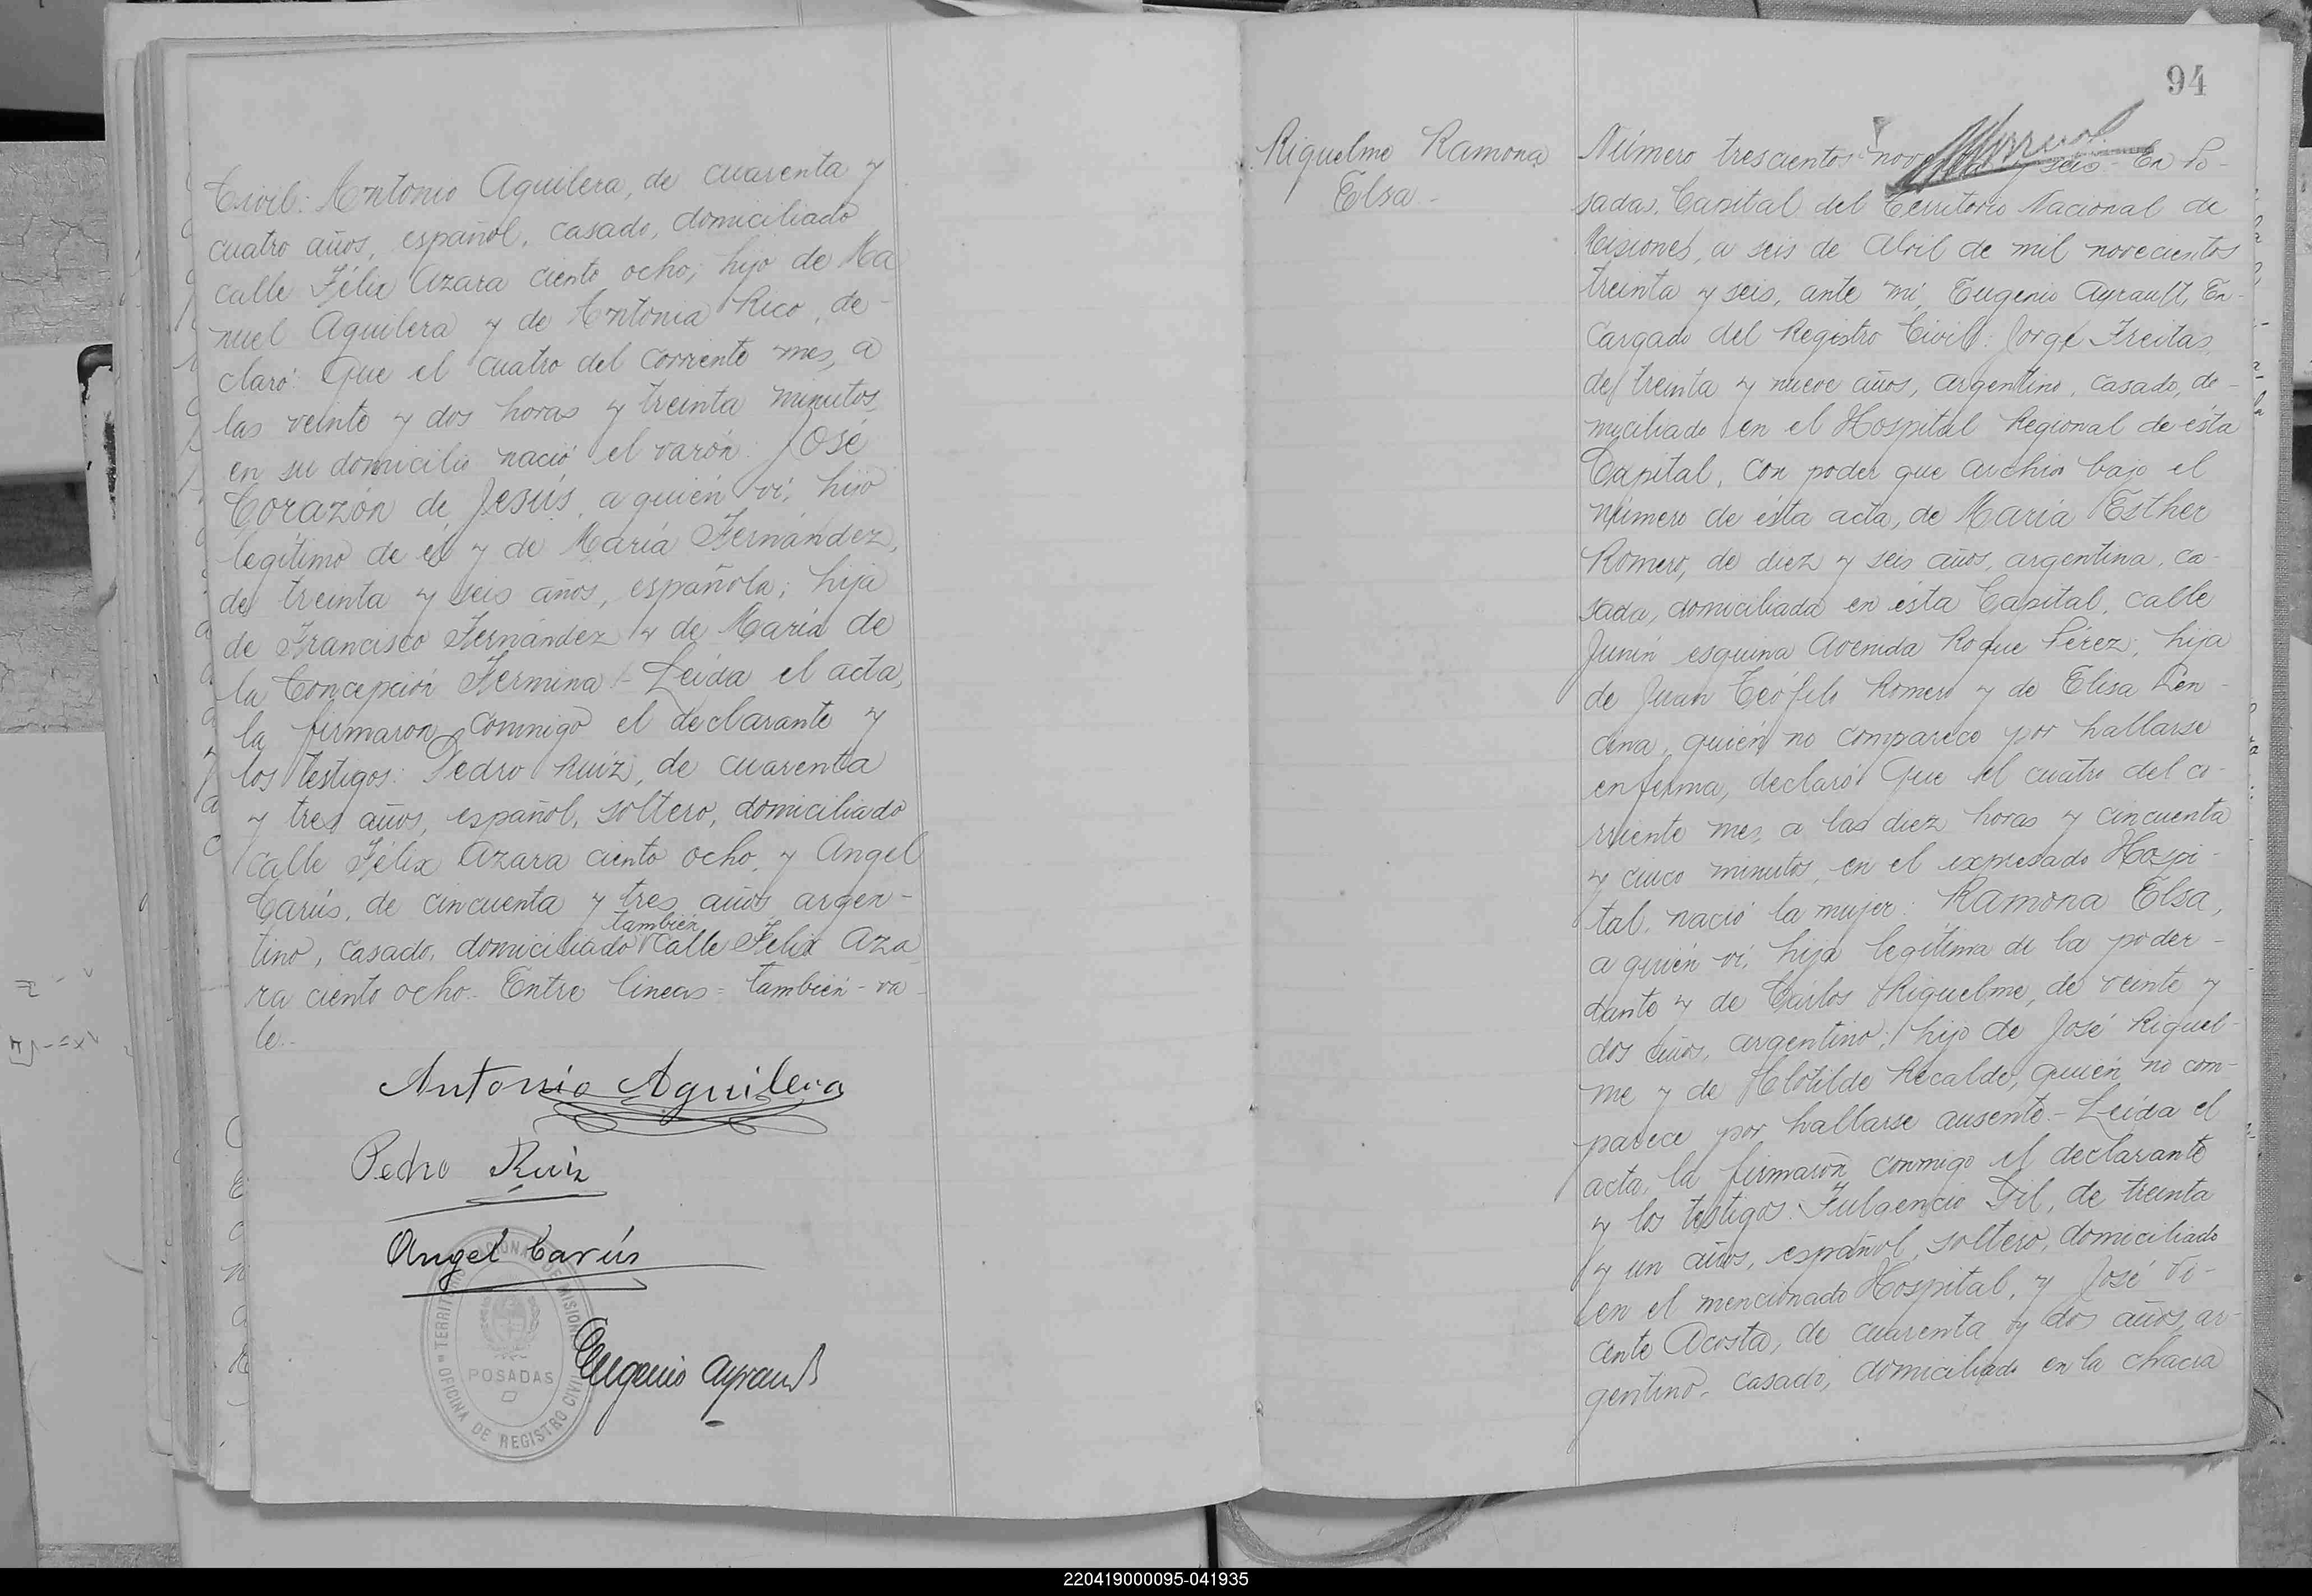 Civil: Antonio Aguilera, de cuarenta y
cuatro años, español, casado, domiciliado
calle Félix Azara ciento ocho; hijo de Ma
nuel Aguilera y de Antonia Rico, de-
claró: Que el cuatro del corriente mes, a
las veinte y dos horas y treinta minutos,
en su domicilio nació el varón: José
Corazón de Jesús, a quién ví, hijo
legítimo de él y de María Fernández,
de treinta y seis años, española; hija
de Francisco Fernández y de María de
la Concepción Fermina.- Leída el acta,
la firmaron conmigo el declarante y
los testigos: Pedro Ruiz, de cuarenta
y tres años, español, soltero, domiciliado
calle Félix Azara ciento ocho, y Angel
Carús, de cincuenta y tres años argen-
también
tino, casado, domiciliado calle Félix Aza
ra ciento ocho.- Entre lineas = también - va-
le.-
Antonio Aguilera
Pedro Ruiz
Angel Carús
Eugenio Ayrault
TERRITORIO NACIONAL DE MISIONES
POSADAS
OFICINA DE REGISTRO CIVIL
94
Riquelme Ramona
Elsa.-
Número trescientos noventa y seis - En Po-
sadas, Capital del Territorio Nacional de
Misiones, a seis de Abril de mil novecientos
treinta y seis, ante mí, Eugenio Ayrault, En-
cargado del Registro Civil: Jorge Freitas,
de treinta y nueve años, argentino, casado, do-
miciliado en el Hospital Regional de ésta
Capital, con poder que archivo bajo el
número de ésta acta, de María Esther
Romero, de diez y seis años, argentina, ca-
sada, domiciliada en ésta Capital, calle
Junín esquina Avenida Roque Pérez; hija
de Juan Teófilo Romero y de Elisa Len-
cina, quién no comparece por hallarse
enferma, declaró: Que el cuatro del co-
rriente mes, a las diez horas y cincuenta
y cinco minutos, en el expresado Hospi-
tal, nació la mujer: Ramona Elsa,
a quién ví, hija legítima de la poder-
dante y de Carlos Riquelme, de veinte y
dos años, argentino; hijo de José Riquel-
me y de Clotilde Recalde, quién no com-
parece por hallarse ausente.- Leída el
acta, la firmaron conmigo el declarante
y los testigos: Fulgencio Gil, de treinta
y un años, español, soltero, domiciliado
en el mencionado Hospital, y José Vi-
cente Acosta, de cuarenta y dos años, ar-
gentino, casado, domiciliado en la chacra
220419000095-041935